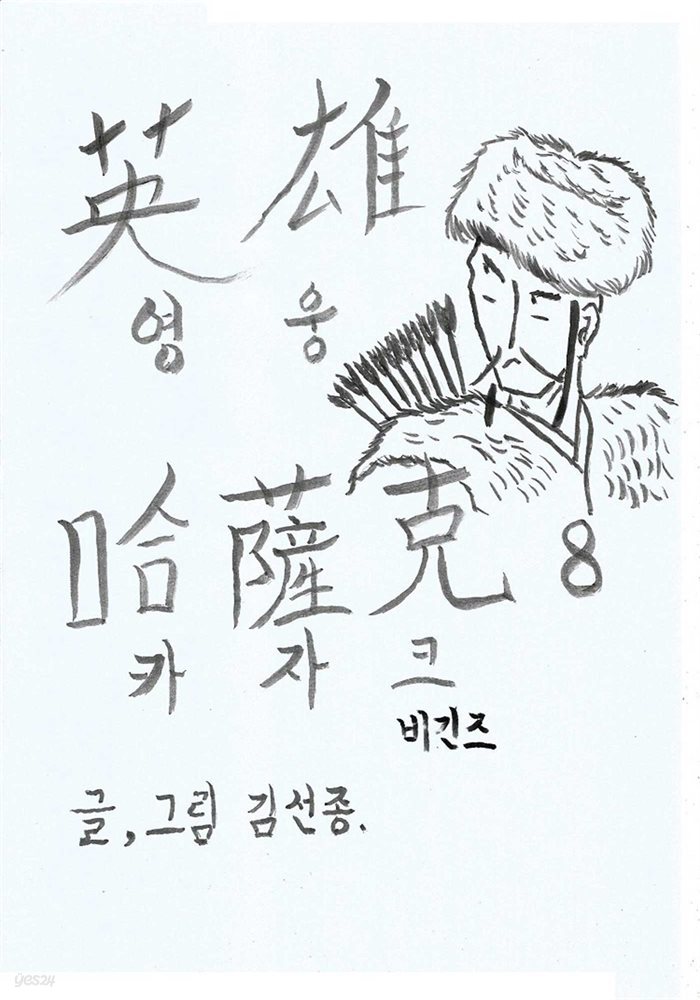 英 雄
영 웅
哈 薩 克 8
카 자 크
비긴즈
글,그림 김선종.
yes24